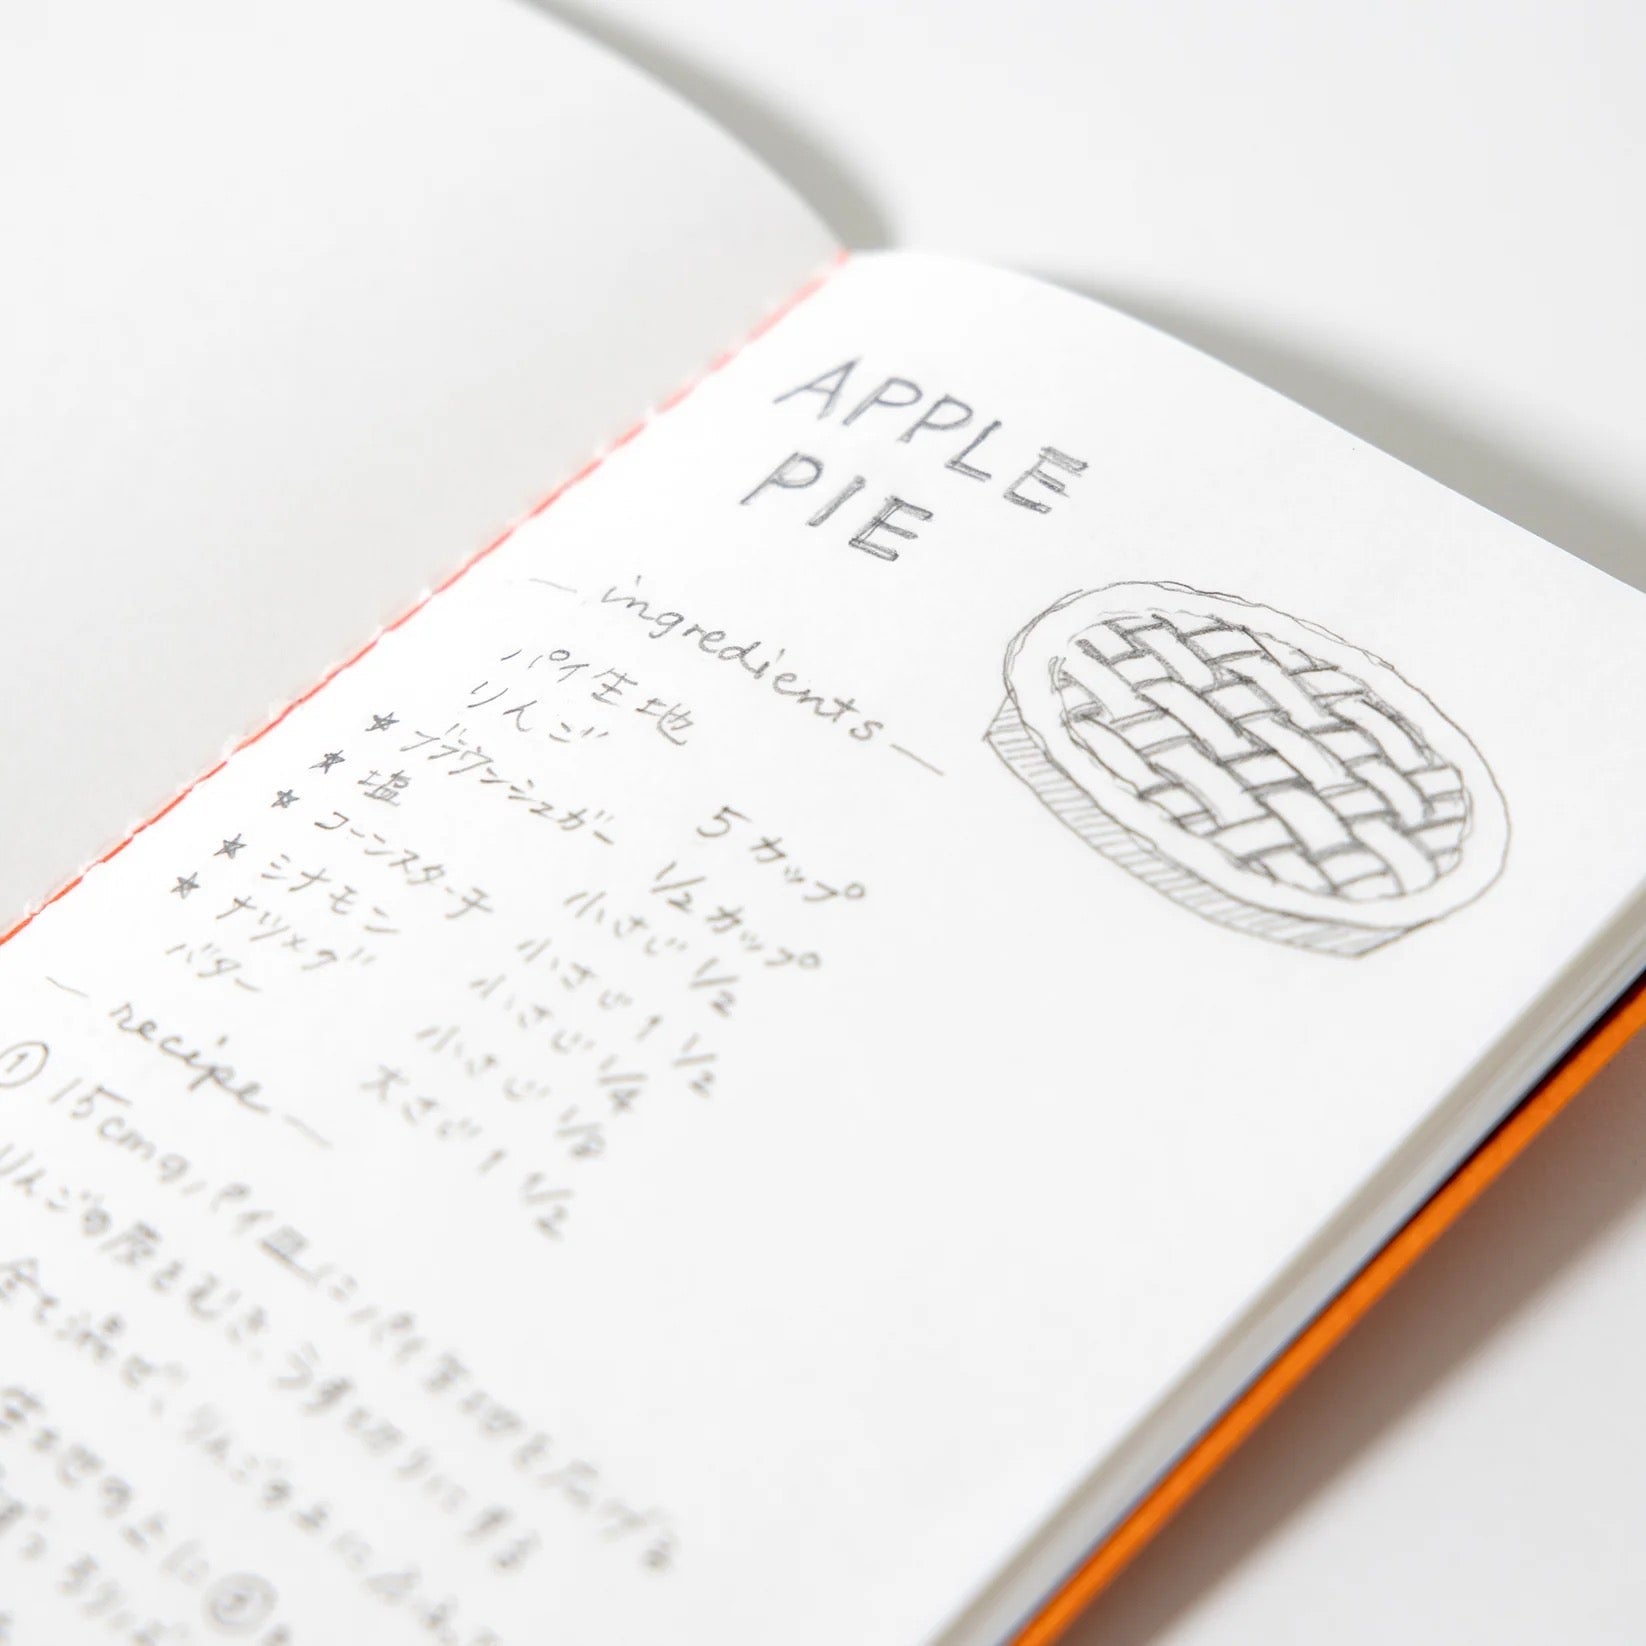 APPLE
PIE
— ingredients —
パイ生地
りんご 5カップ
☆ ブラウンシュガー 1/2カップ
☆ 塩 小さじ 1/2
☆ コーンスターチ 小さじ 1 1/2
☆ シナモン 小さじ 1/4
☆ ナツメグ 小さじ 1/8
バター 大さじ 1 1/2
— recipe —
① 15cmのパイ皿にパイ生地を広げる
りんごの皮をむき、うす切りにする
全て混ぜ、りんごの上に
生地の上に②